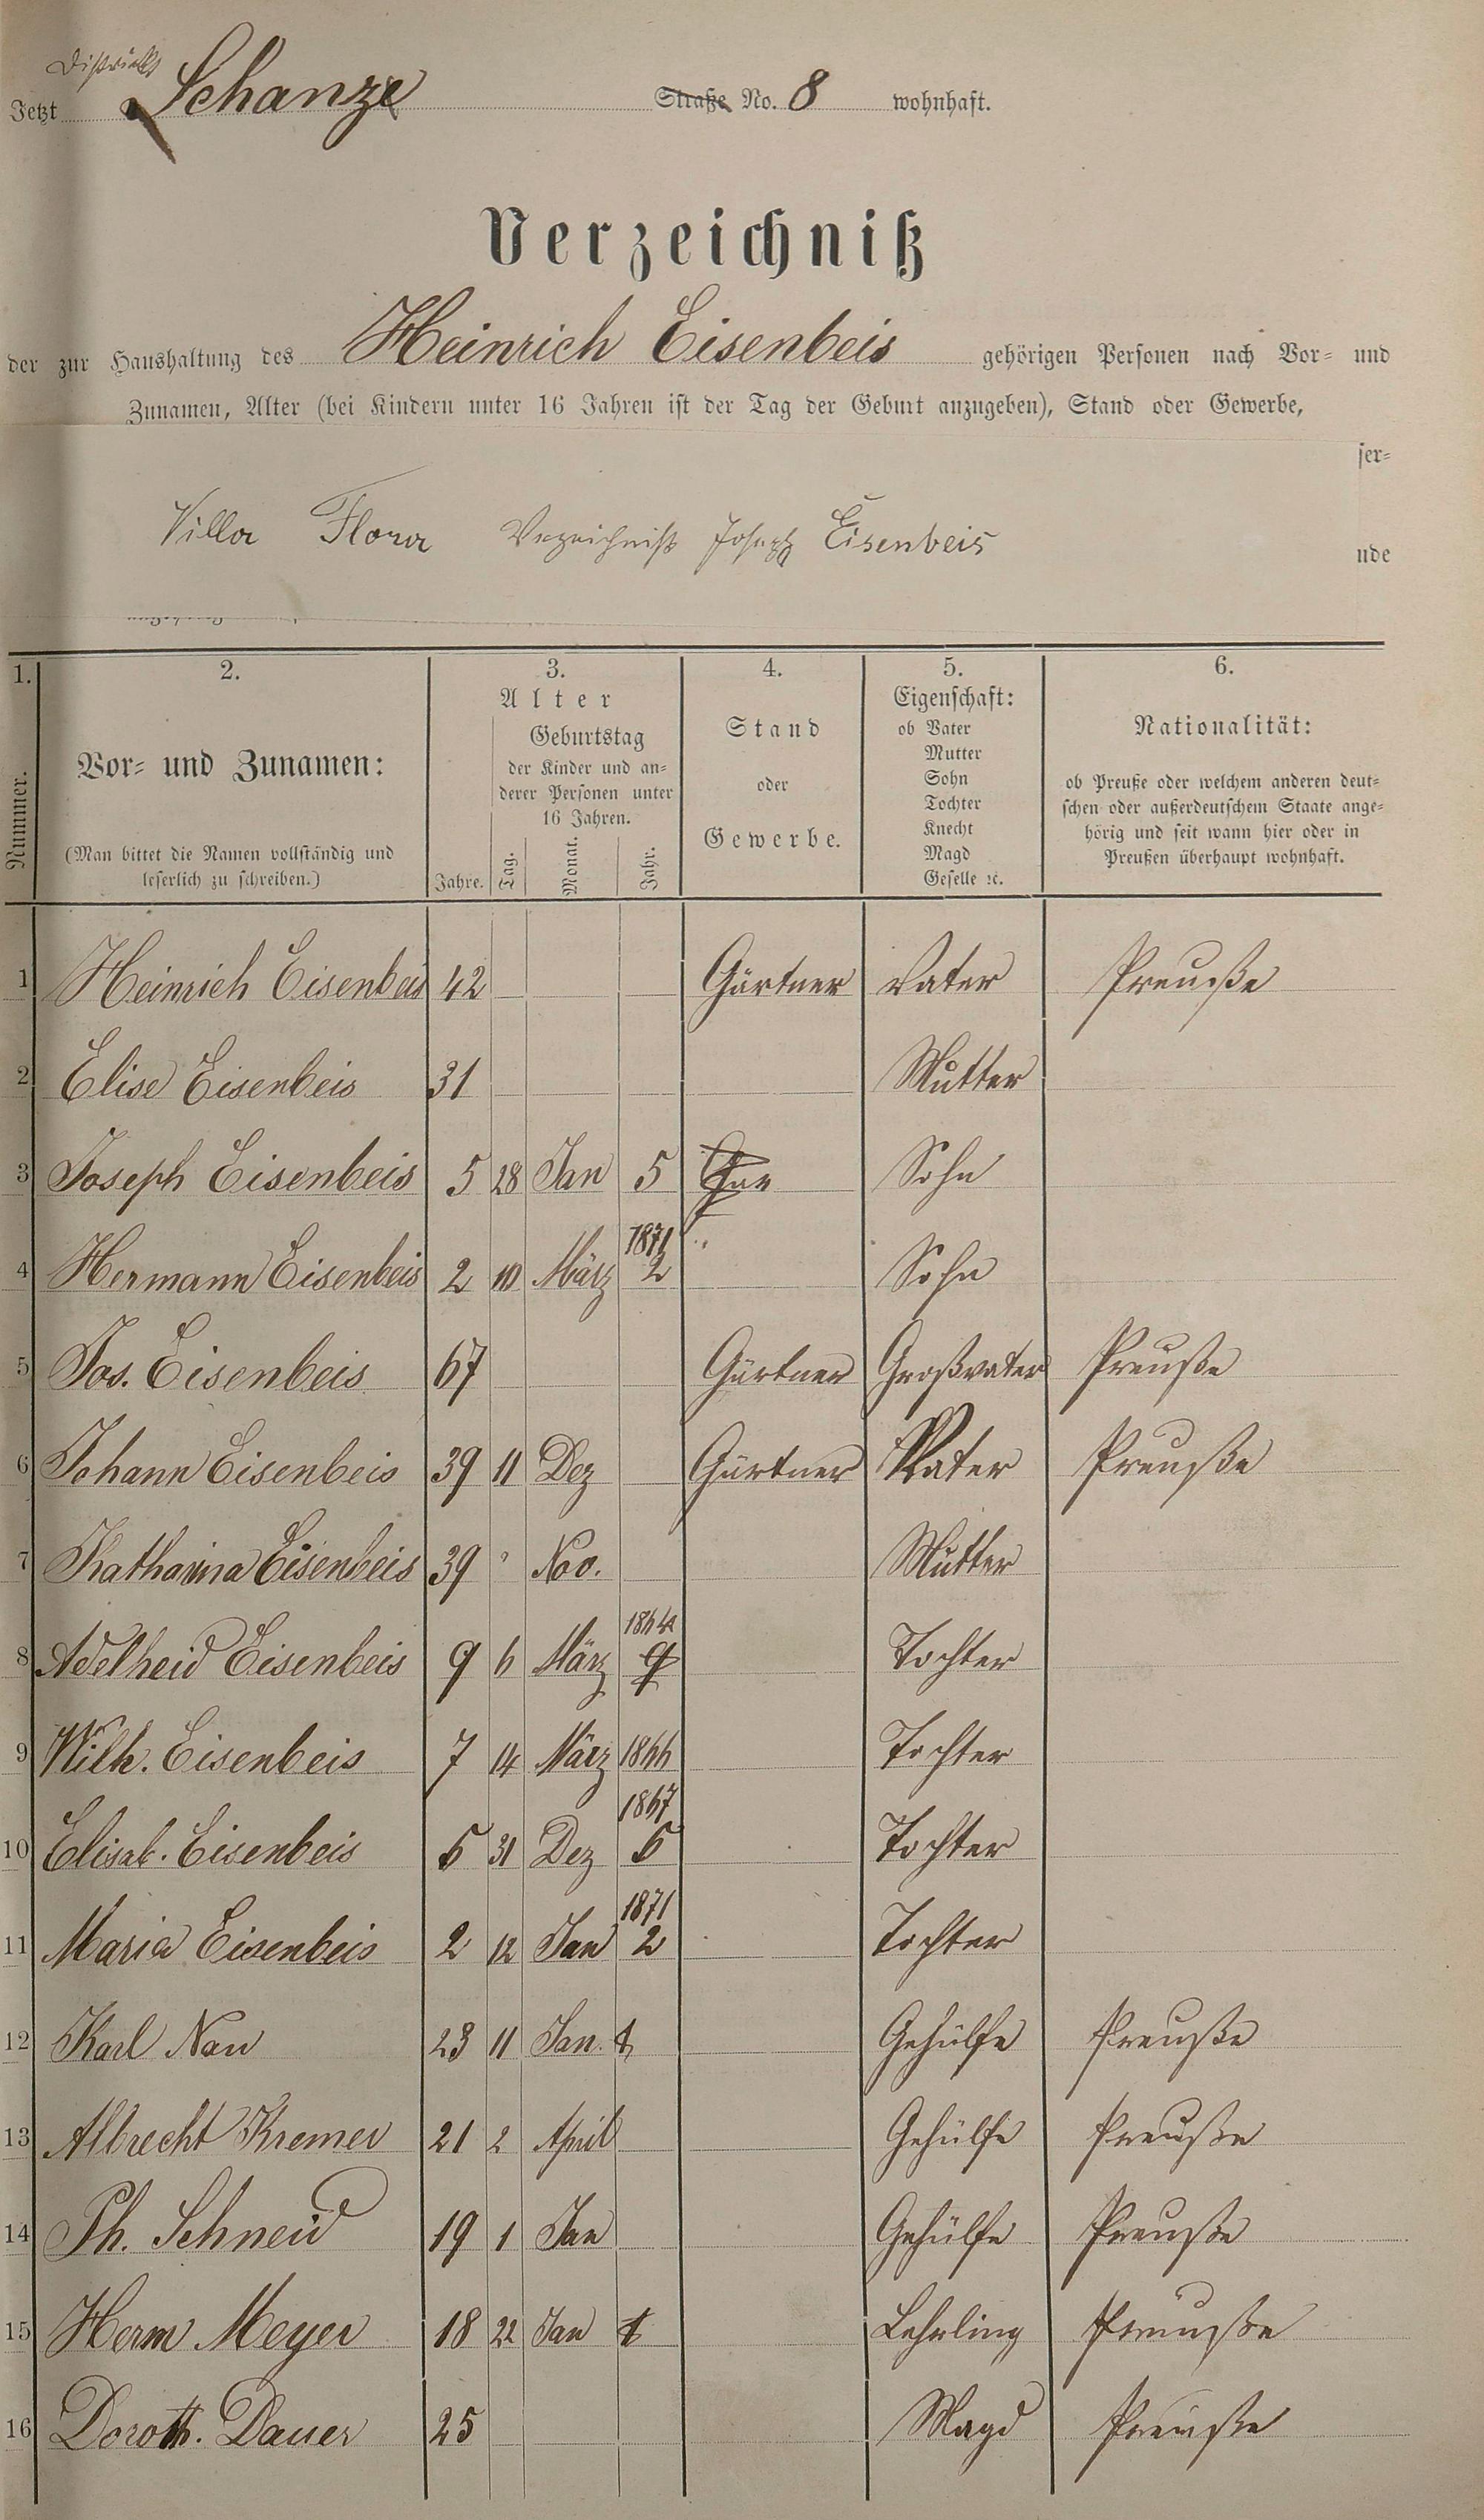 District
Jetzt Schanze Straße No. 8 wohnhaft.
Verzeichniß
der zur Haushaltung des Heinrich Eisenbeis gehörigen Personen nach Vor- und
Zunamen, Alter (bei Kindern unter 16 Jahren ist der Tag der Geburt anzugeben), Stand oder Gewerbe,
ser-
Villa Flora Verzeichniß Joseph Eisenbeis
nde
1. 2. 3. 4. 5. 6.
Nummer.
Vor- und Zunamen:
(Man bittet die Namen vollständig und
leserlich zu schreiben.)
Alter
Jahre.
Geburtstag
der Kinder und an-
derer Personen unter
16 Jahren.
Tag. Monat. Jahr.
Stand
oder
Gewerbe.
Eigenschaft:
ob Vater
Mutter
Sohn
Tochter
Knecht
Magd
Geselle ꝛc.
Nationalität:
ob Preuße oder welchem anderen deut-
schen oder außerdeutschem Staate ange-
hörig und seit wann hier oder in
Preußen überhaupt wohnhaft.
1 Heinrich Eisenbeis 42 Gärtner Vater Preuße
2 Elise Eisenbeis 31 Mutter
3 Joseph Eisenbeis 5 28 Jan 5 Sohn
4 Hermann Eisenbeis 2 10 März 1871 2 Sohn
5 Jos. Eisenbeis 67 Gärtner Großvater Preuße
6 Johann Eisenbeis 39 11 Dez Gärtner Vater Preuße
7 Katharina Eisenbeis 39 " Nov. Mutter
8 Adelheid Eisenbeis 9 6 März 1864 9 Tochter
9 Wilh. Eisenbeis 7 14 März 1866 Tochter
10 Elisab. Eisenbeis 6 31 Dez 1867 6 Tochter
11 Maria Eisenbeis 2 12 Jan 1871 2 Tochter
12 Karl Nau 23 11 Jan. Gehülfe Preuße
13 Albrecht Kremer 21 2 April Gehülfe Preuße
14 Ph. Schneid 19 1 Jan Gehülfe Preuße
15 Herm Meyer 18 22 Jan Lehrling Preuße
16 Doroth. Dauer 25 Magd Preuße